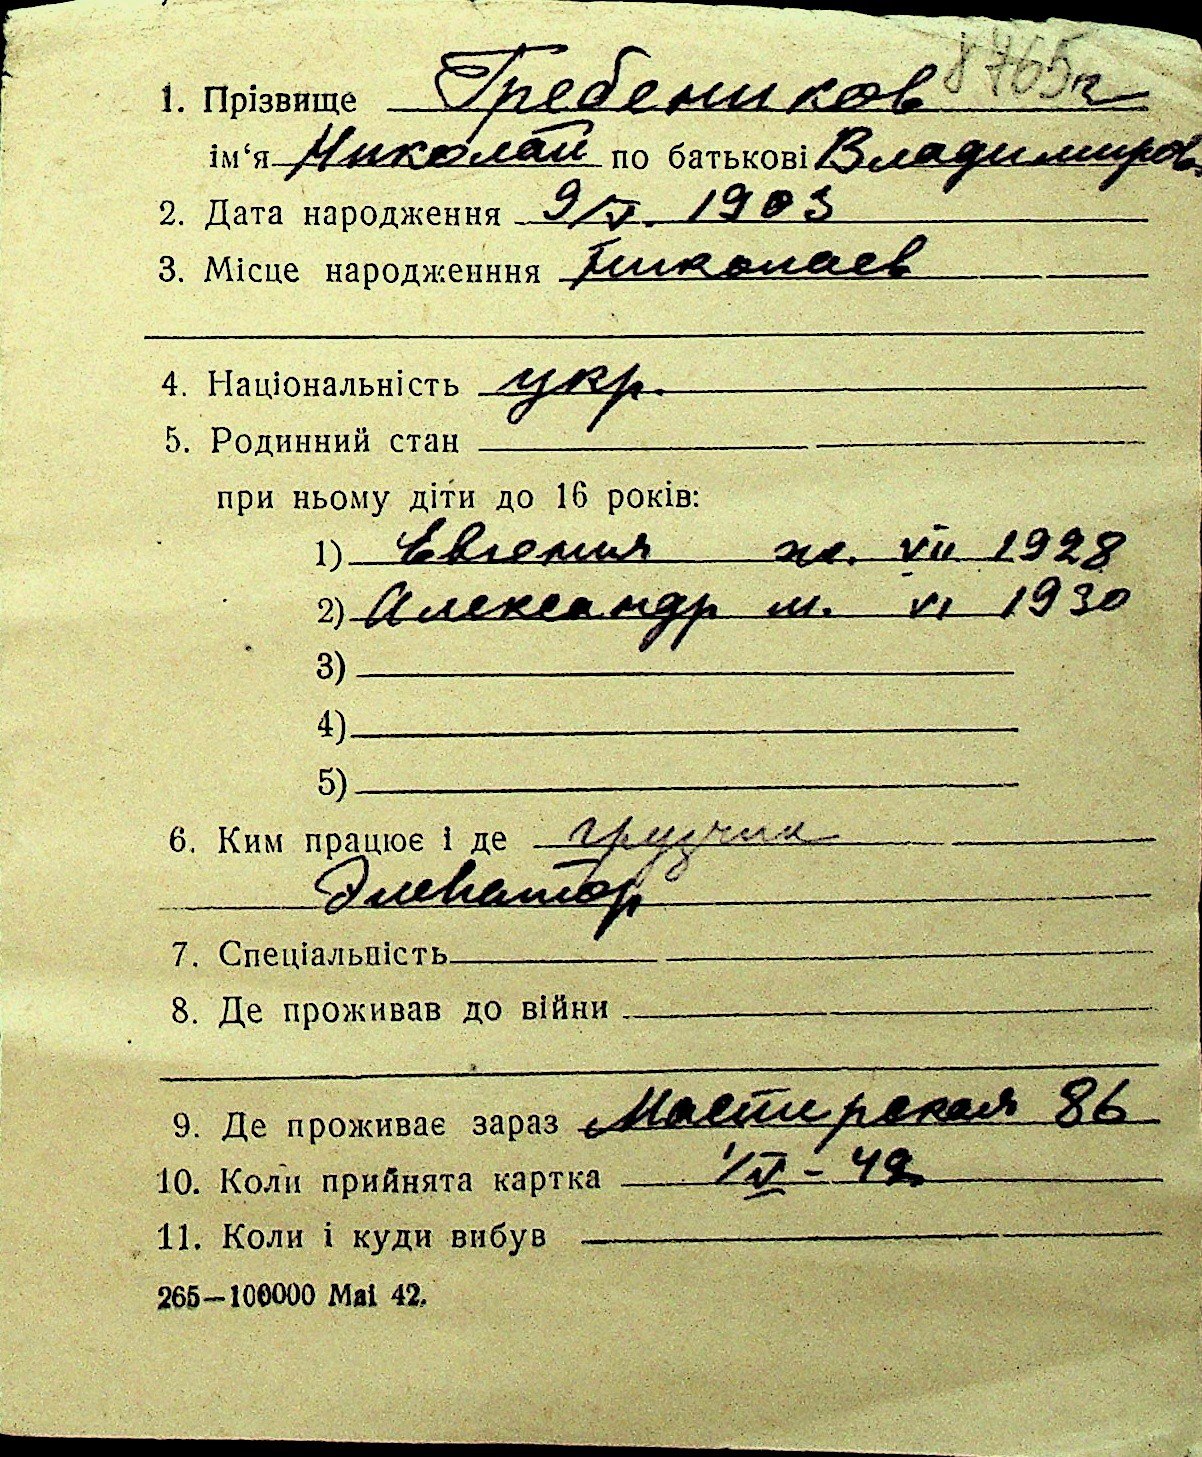 8765г
1. Прізвище Гребеников
ім‘я Николай по батькові Владимиров
2. Дата народження 9/IV. 1903
3. Місце народженння Николаев
4. Національність укр.
5. Родинний стан
при ньому діти до 16 років:
1) Евгения ж. VII 1928
2) Александр м. VI 1930
3)
4)
5)
6. Ким працює і де грузчик
Элеватор
7. Спеціальність
8. Де проживав до війни
9. Де проживає зараз Мастирская 86
10. Коли прийнята картка 1/IV - 42
11. Коли і куди вибув
265—100000 Mai 42.